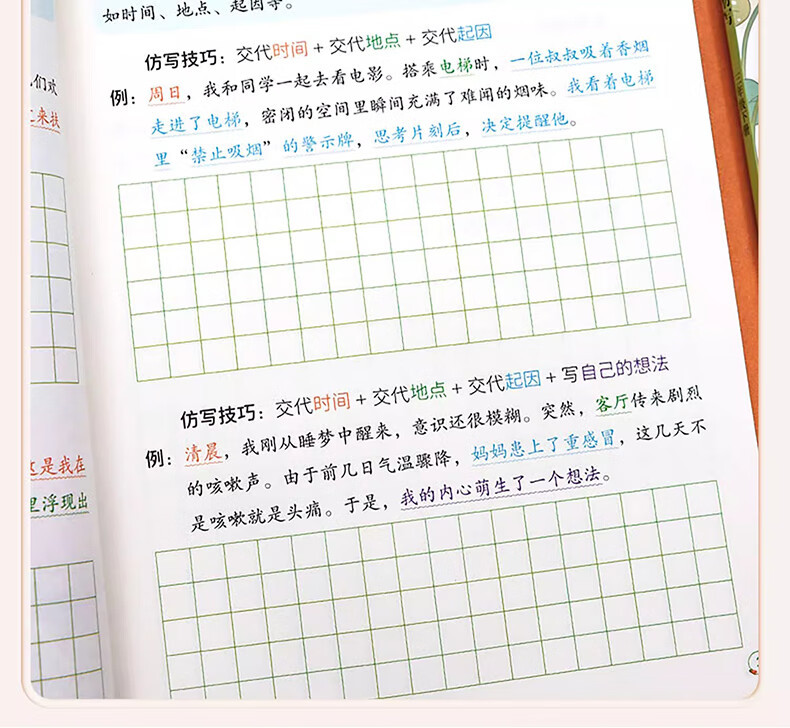 如时间、地点、起因等。
仿写技巧：交代时间 + 交代地点 + 交代起因
例：周日，我和同学一起去看电影。搭乘电梯时，一位叔叔吸着香烟
走进了电梯，密闭的空间里瞬间充满了难闻的烟味。我看着电梯
里“禁止吸烟”的警示牌，思考片刻后，决定提醒他。
仿写技巧：交代时间 + 交代地点 + 交代起因 + 写自己的想法
例：清晨，我刚从睡梦中醒来，意识还很模糊。突然，客厅传来剧烈
的咳嗽声。由于前几日气温骤降，妈妈患上了重感冒，这几天不
是咳嗽就是头痛。于是，我的内心萌生了一个想法。
们欢
来技
这是我在
里浮现出